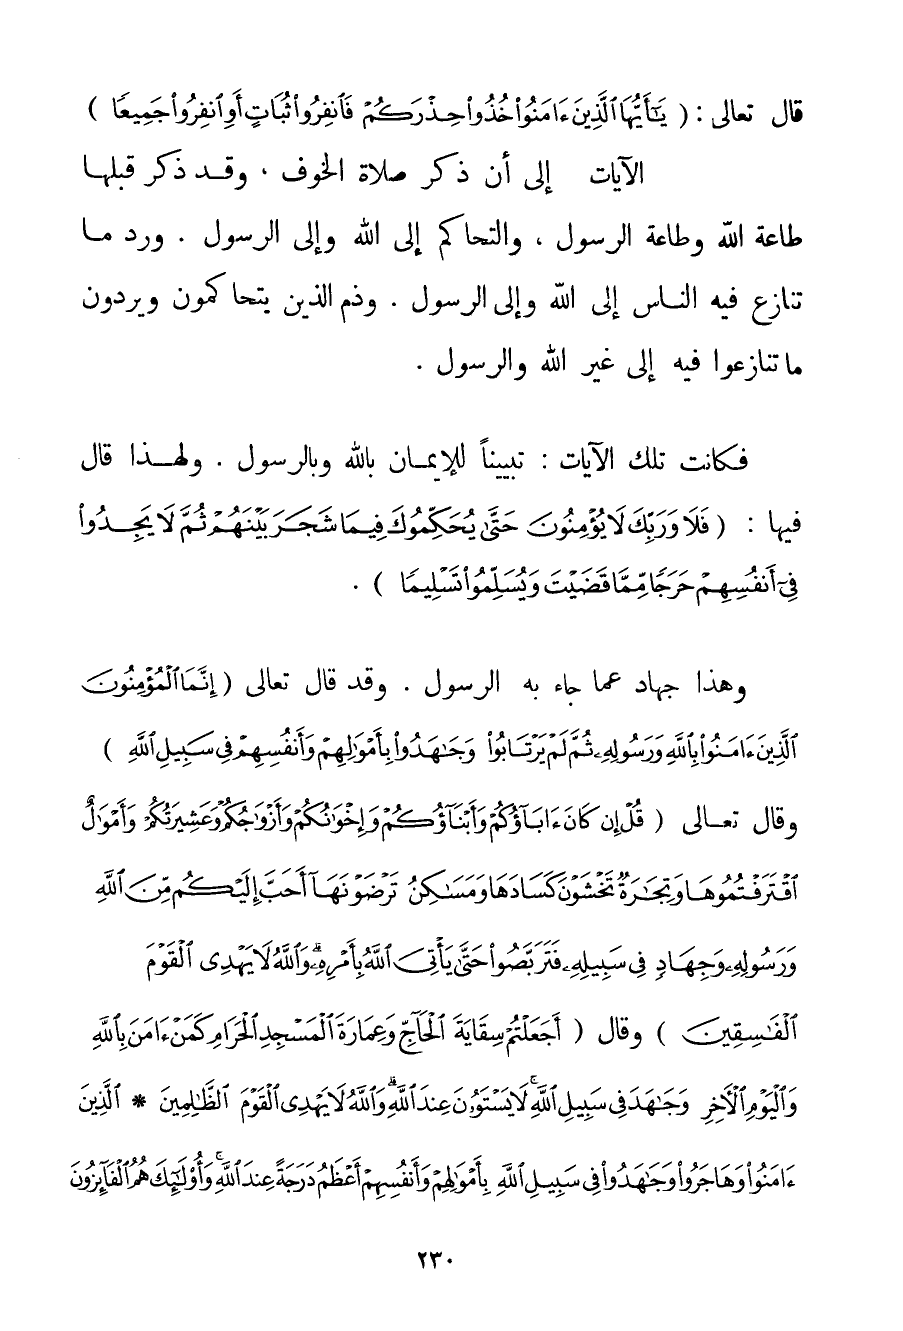 قال تعالى : ( يَـٰٓأَيُّهَا ٱلَّذِينَ ءَامَنُوا۟ خُذُوا۟ حِذْرَكُمْ فَٱنفِرُوا۟ ثُبَاتٍ أَوِ ٱنفِرُوا۟ جَمِيعًا )
الآيات إلى أن ذكر صلاة الخوف . وقد ذكر قبلها
طاعة الله وطاعة الرسول ، والتحاكم إلى الله وإلى الرسول . ورد ما
تنازع فيه الناس إلى الله وإلى الرسول . وذم الذين يتحاكمون ويردون
ما تنازعوا فيه إلى غير الله والرسول .
فكانت تلك الآيات : تبييناً للإيمان بالله وبالرسول . ولهذا قال
فيها : ( فَلَا وَرَبِّكَ لَا يُؤْمِنُونَ حَتَّىٰ يُحَكِّمُوكَ فِيمَا شَجَرَ بَيْنَهُمْ ثُمَّ لَا يَجِدُوا۟
فِىٓ أَنفُسِهِمْ حَرَجًا مِّمَّا قَضَيْتَ وَيُسَلِّمُوا۟ تَسْلِيمًا ) .
وهذا جهاد عما جاء به الرسول . وقد قال تعالى ( إِنَّمَا ٱلْمُؤْمِنُونَ
ٱلَّذِينَ ءَامَنُوا۟ بِٱللَّهِ وَرَسُولِهِۦ ثُمَّ لَمْ يَرْتَابُوا۟ وَجَـٰهَدُوا۟ بِأَمْوَٰلِهِمْ وَأَنفُسِهِمْ فِى سَبِيلِ ٱللَّهِ )
وقال تعالى ( قُلْ إِن كَانَ ءَابَآؤُكُمْ وَأَبْنَآؤُكُمْ وَإِخْوَٰنُكُمْ وَأَزْوَٰجُكُمْ وَعَشِيرَتُكُمْ وَأَمْوَٰلٌ
ٱقْتَرَفْتُمُوهَا وَتِجَـٰرَةٌ تَخْشَوْنَ كَسَادَهَا وَمَسَـٰكِنُ تَرْضَوْنَهَآ أَحَبَّ إِلَيْكُم مِّنَ ٱللَّهِ
وَرَسُولِهِۦ وَجِهَادٍ فِى سَبِيلِهِۦ فَتَرَبَّصُوا۟ حَتَّىٰ يَأْتِىَ ٱللَّهُ بِأَمْرِهِۦ ۗ وَٱللَّهُ لَا يَهْدِى ٱلْقَوْمَ
ٱلْفَـٰسِقِينَ ) وقال ( أَجَعَلْتُمْ سِقَايَةَ ٱلْحَآجِّ وَعِمَارَةَ ٱلْمَسْجِدِ ٱلْحَرَامِ كَمَنْ ءَامَنَ بِٱللَّهِ
وَٱلْيَوْمِ ٱلْـَٔاخِرِ وَجَـٰهَدَ فِى سَبِيلِ ٱللَّهِ ۚ لَا يَسْتَوُۥنَ عِندَ ٱللَّهِ ۗ وَٱللَّهُ لَا يَهْدِى ٱلْقَوْمَ ٱلظَّـٰلِمِينَ * ٱلَّذِينَ
ءَامَنُوا۟ وَهَاجَرُوا۟ وَجَـٰهَدُوا۟ فِى سَبِيلِ ٱللَّهِ بِأَمْوَٰلِهِمْ وَأَنفُسِهِمْ أَعْظَمُ دَرَجَةً عِندَ ٱللَّهِ ۚ وَأُو۟لَـٰٓئِكَ هُمُ ٱلْفَآئِزُونَ
٢٣٠